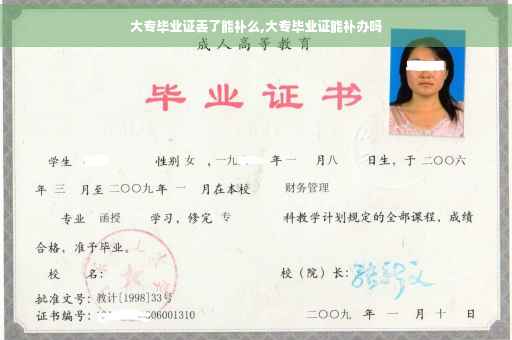 大专毕业证丢了能补么,大专毕业证能补办吗
成人高等教育
毕业证书
学生 性别 女 ,一九 年一 月八 日生,于二〇〇六
年 三 月至二〇〇九年 一 月在本校 财务管理
专业 函授 学习,修完 专 科教学计划规定的全部课程,成绩
合格,准予毕业。
校 名: 校(院)长:
批准文号:教计[1998]33号
证书编号: 06001310 二〇〇九 年 一 月 十 日